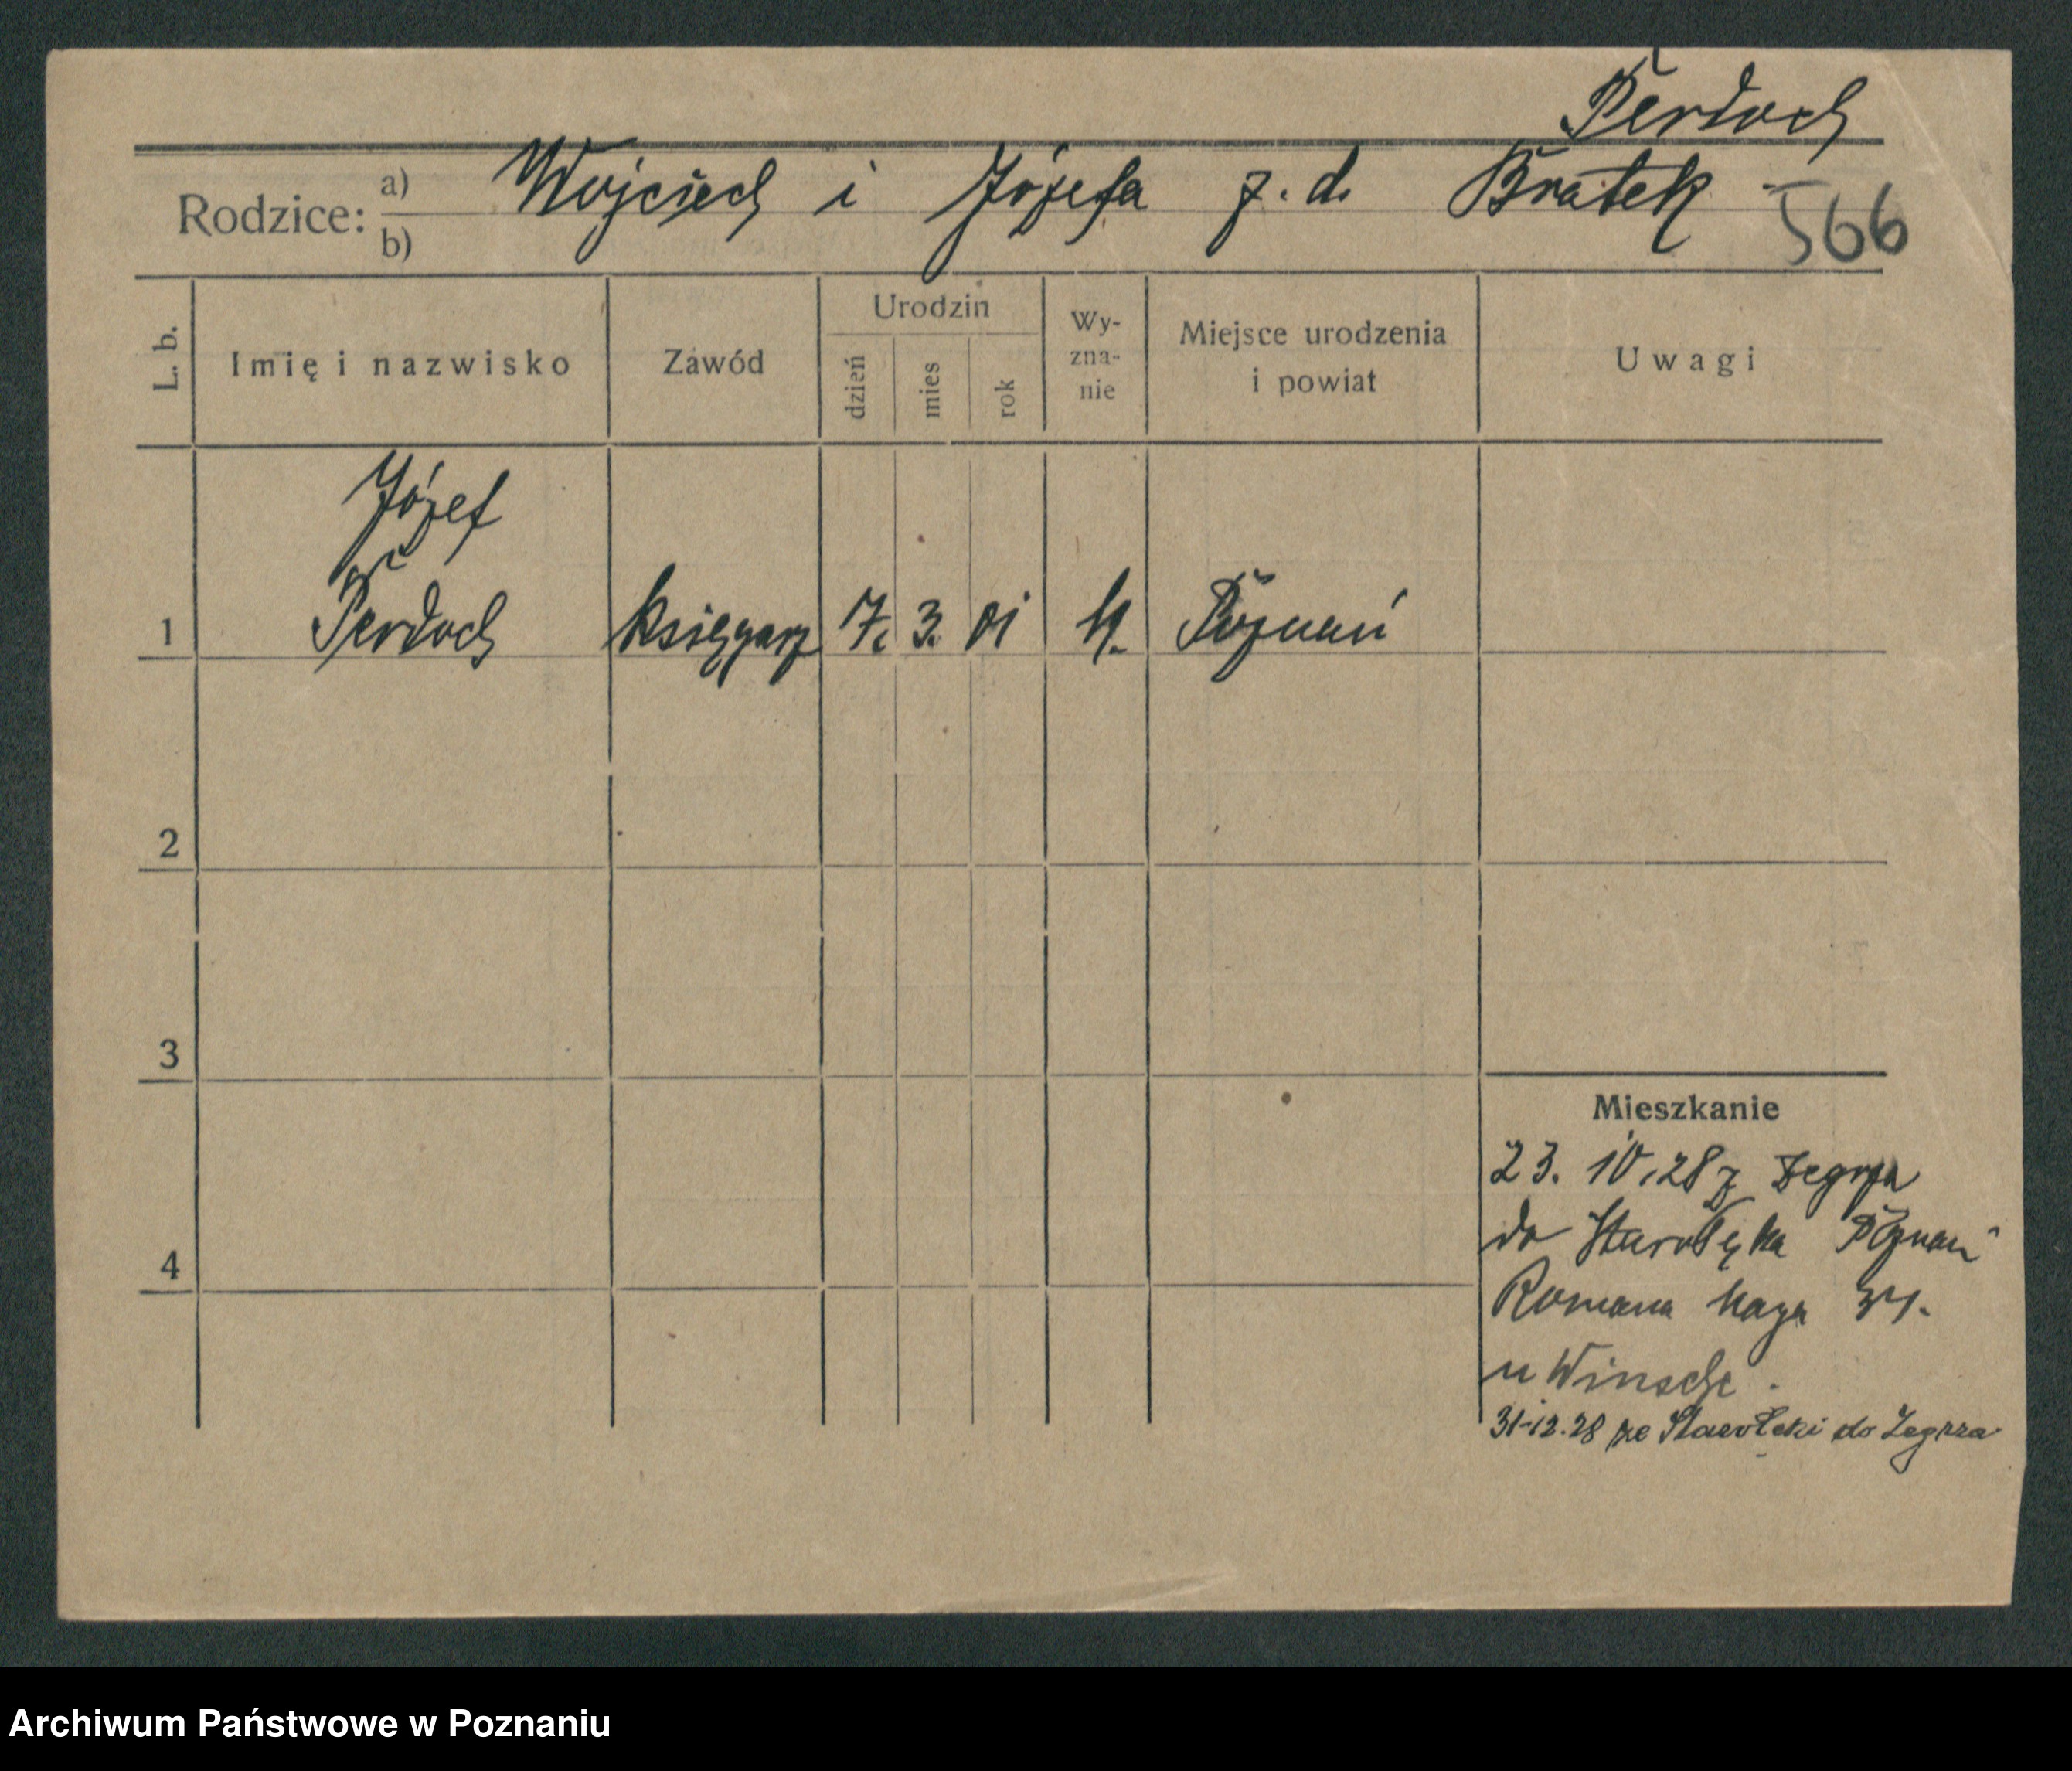 Perdoch
Rodzice: a) b) Wojciech i Józefa z. d. Bratek
566
L. b. Imię i nazwisko Zawód Urodzin dzień mies rok Wy-zna-nie Miejsce urodzenia i powiat Uwagi
Józef
1 Perdoch księgarz 7. 3. 01 k. Poznań
2
3
Mieszkanie
23. 10. 28 z Zegrza
4 do Starołęka Poznań
Romana Maya 34.
u Winsche.
31-12.28 ze Starołęki do Zegrza
Archiwum Państwowe w Poznaniu